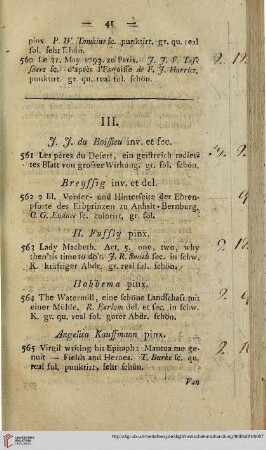 — 41 —
pinx. P. W. Tomkins sc. punktirt. gr. qu. real
fol. sehr schön.
560 Le 21. May. 1793. zu Paris. J. J. F.
sc. d'après l'Esquisse de F. J. Harriet.
punktirt. gr. qu. real fol. schön.
III.
J. J. du Boissieu inv. et fec.
561 Les péres du Desert, ein geistreich radier-
tes Blatt von grosser Wirkung. gr. fol. schön.
Breyssig inv. et del.
562 2 Bl. Vorder- und Hinterseite der Ehren-
pforte des Erbprinzen zu Anhalt-Bernburg.
C. G. sc. colorirt, gr. fol.
H. Fussly pinx.
563 Lady Macbeth. Act. 5. one, two, why
then 'tis time to do't. J. R. Smith sc. in schw.
K. kräftiger Abdr. gr. real fol. schön.
Hobbema pinx.
564 The Watermill, eine schöne Landschaft mit
einer Mühle. R. Earlom del. et sc. in schw.
K. gr. qu. real fol. guter Abdr. schön.
Angelica Kauffmann pinx.
565 Virgil writing his Epitaph: Mantua me ge-
nuit — Fields and Heroes. T. Burke sc. qu.
real fol. punktirt, sehr schön.
Van